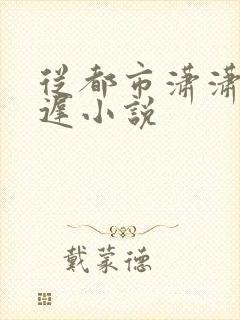 從都市潇潇
遲小説
戴蒙德